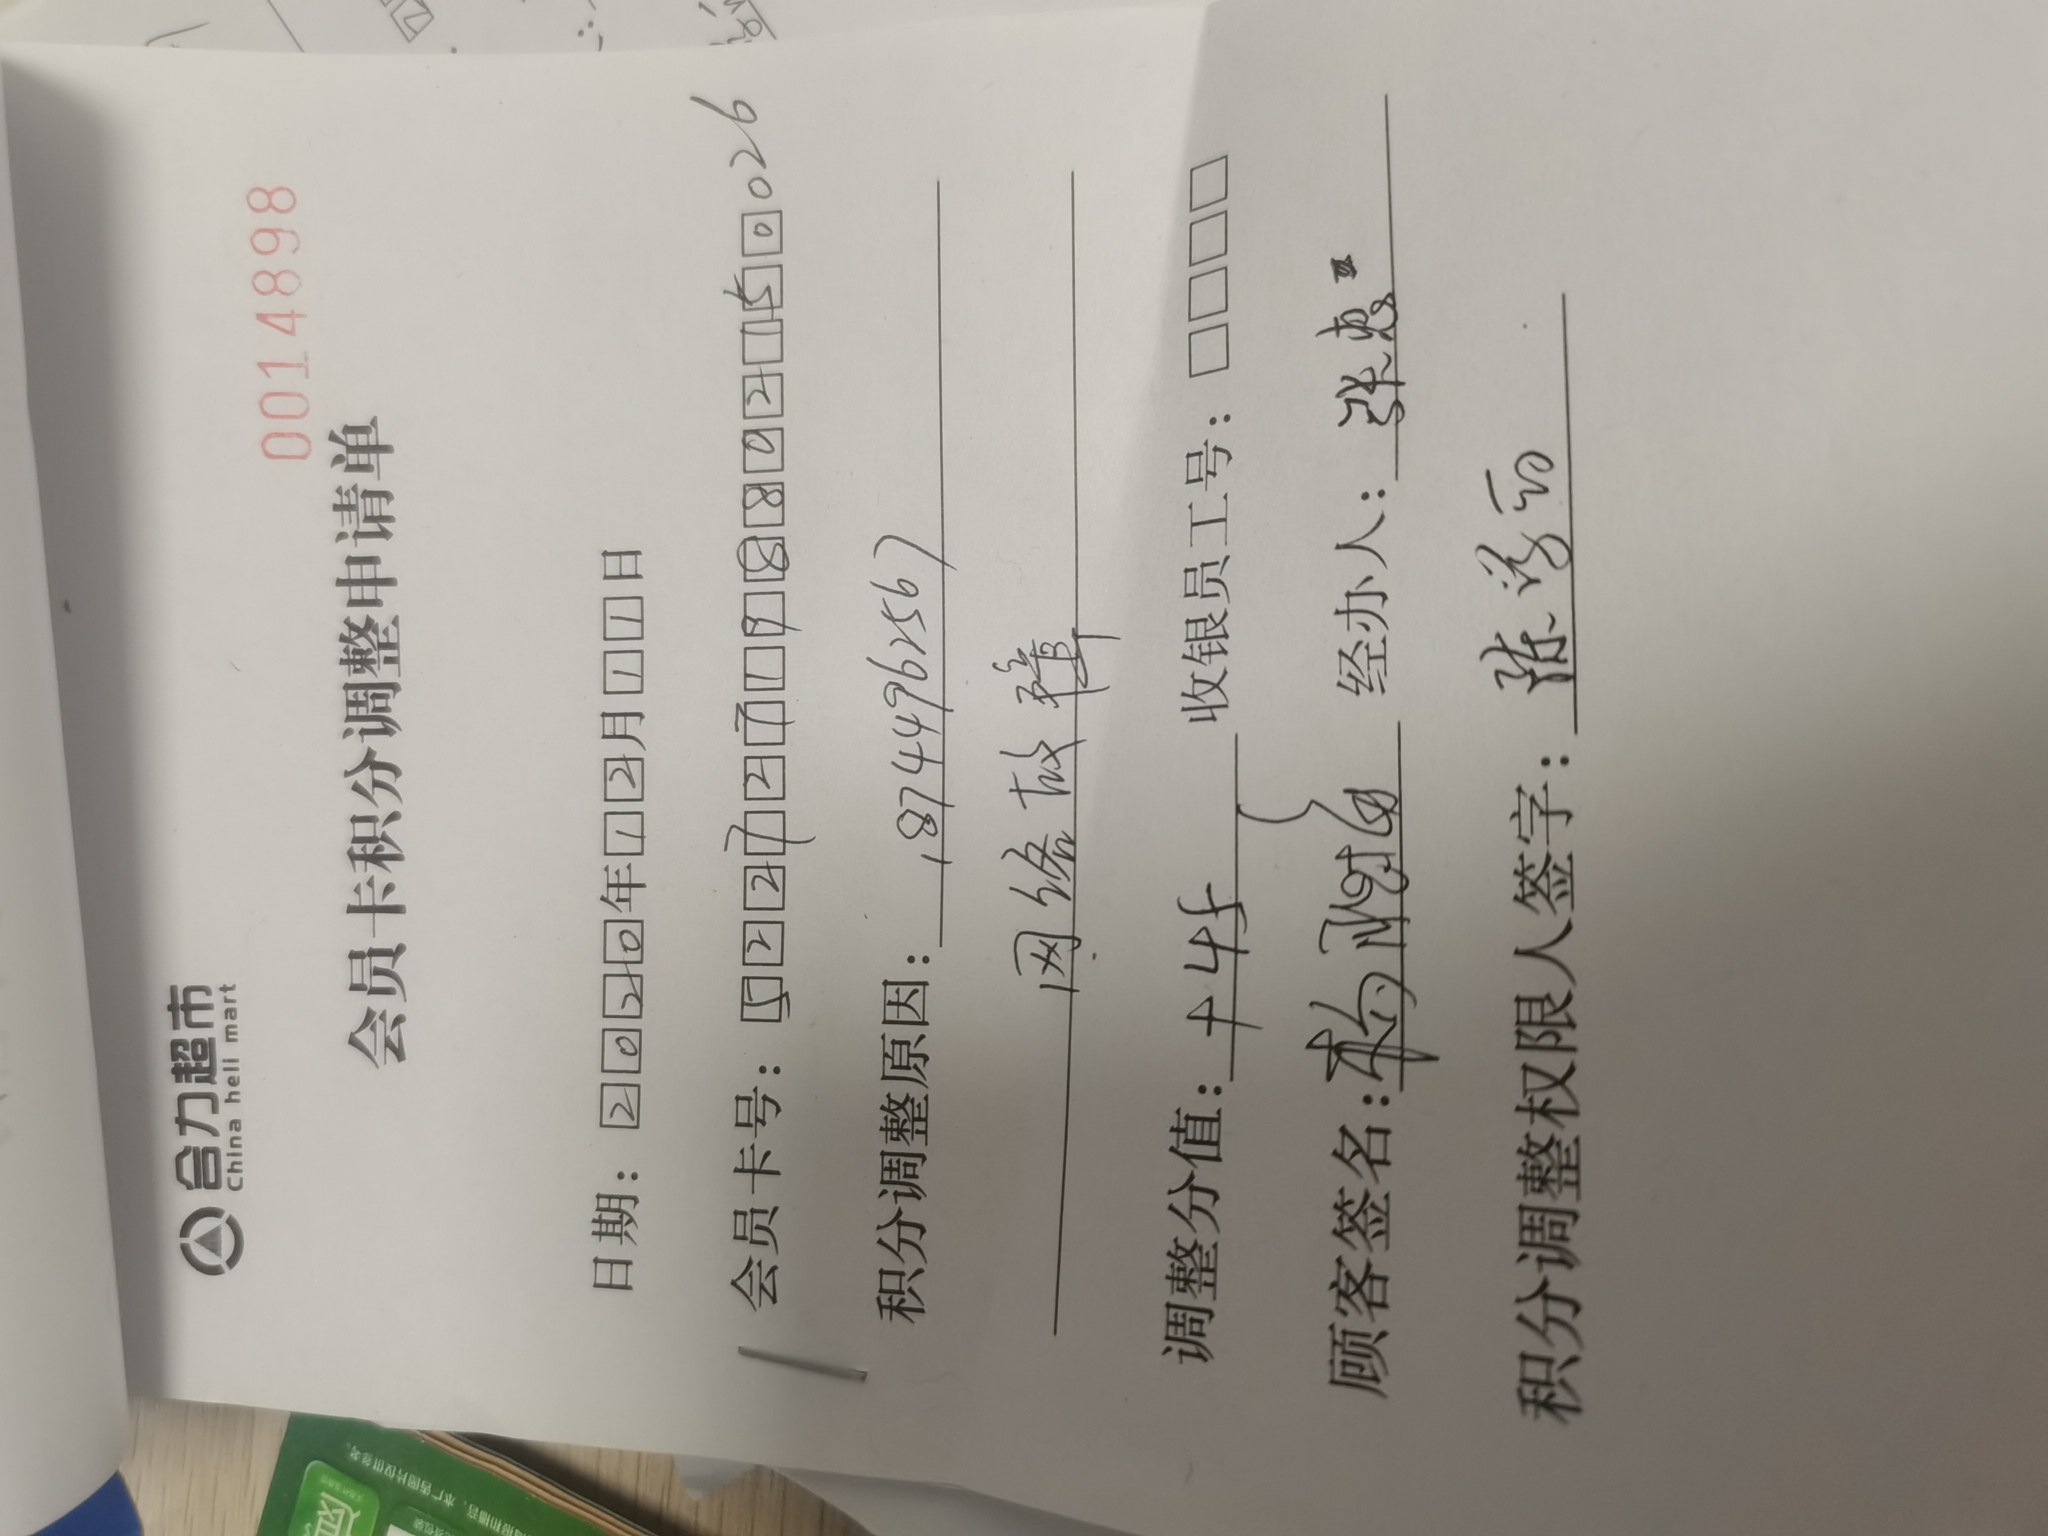 合力超市
China heli mart
0014898
会员卡积分调整申请单
日期：2020年12月11日
会员卡号：522727198802150026
积分调整原因：18744962567
网络故障
调整分值：+45 收银员工号：□□□□
顾客签名： 经办人：张惠
积分调整权限人签字：陈